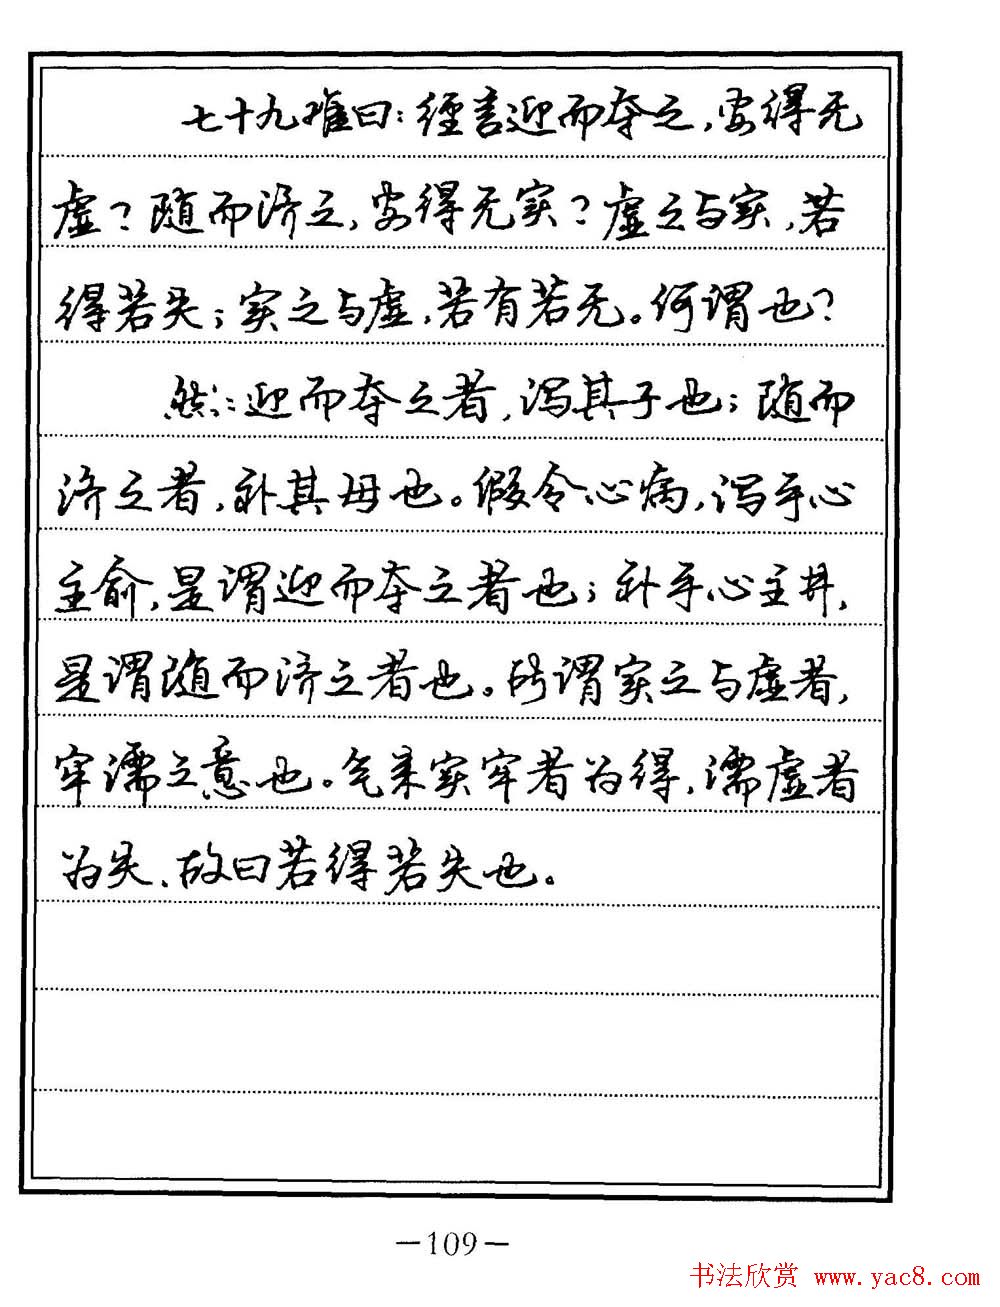 七十九难曰：经言迎而夺之，安得无
虚？随而济之，安得无实？虚之与实，若
得若失；实之与虚，若有若无。何谓也？
然：迎而夺之者，泻其子也；随而
济之者，补其母也。假令心病，泻手心
主俞，是谓迎而夺之者也；补手心主井，
是谓随而济之者也。所谓实之与虚者，
牢濡之意也。气来实牢者为得，濡虚者
为失、故曰若得若失也。
—109—
书法欣赏 www.yac8.com